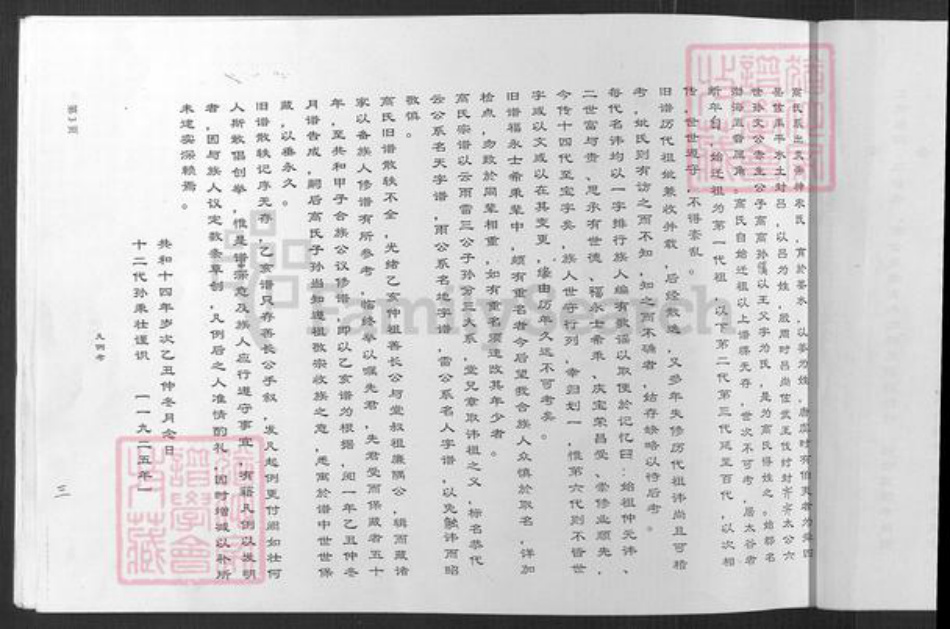 高氏系出炎帝神农氏，育於姜水，以姜为姓，唐虞时有伯夷者为舜四
是佐禹平水土封吕，以吕为姓，殷周时吕尚佐武王伐纣封齐齐太公六
世孙文公赤生公子高高孙傒以王父字为氏，是为高氏得姓之。始郡名
渤海五音属角，高氏自始迁祖以上谱牒无存，世次不可考，居太谷者
断年自，始迁祖为第一代祖，以下第二代第三代延至百代，以次相
传，世世遵守，不得紊乱。
旧谱历代祖妣兼收并载，后经散逸，又多年失修历代祖讳尚且可稽
考，妣氏则有访之而不知，知之而不确者，姑存缺略以待后考。
每代名讳均以一字排行族人编有歌谣以取便於记忆曰：始祖仲元讳、
二世富与贵、思承有世德、福永士希秉、庆宝荣昌受、崇修业顺先，
今传十四代至宝字矣，族人世守行列，幸归划一，惟第六代则不皆世
字或以文或以在其变更，缘由历年久远不可考矣。
旧谱福永士希秉辈中，颇有重名者今后望我合族人众慎於取名，详加
检点，勿致於同辈相重，如有重名须速改其年少者。
高氏宗谱以云雨雷三公子孙分三大系，堂兄章取讳祖之义，标名恭代
云公系名天字谱，雨公系名地字谱，雷公系名人字谱，以免触讳而昭
敬慎。
高氏旧谱散轶不全，光绪乙亥仲祖善长公与堂叔祖廉隅公，辑而藏诸
家以备族人修谱有所参考，临终举以嘱先君，先君受而保藏者五十
年，至共和甲子合族公议修谱，即以乙亥谱为根据，阅一年乙丑仲冬
月谱告成，嗣后高氏子孙当知遵祖敬宗收族之意，悉寓於谱中世世保
藏，以垂永久。
旧谱散轶记序无存，乙亥谱只存善长公手叙，发凡起例更付阙如壮何
人斯敢倡创举，惟是谱深意及族人应行遵守事宜，有藉凡例以发明
者，因与族人议定数条草创，凡例后之人准情酌礼，因时增减以补所
未逮实深赖焉。
共和十四年岁次乙丑仲冬月念日
十二代孙秉壮谨识 （一九二五年）
凡例考
三
第3页
FamilySearch